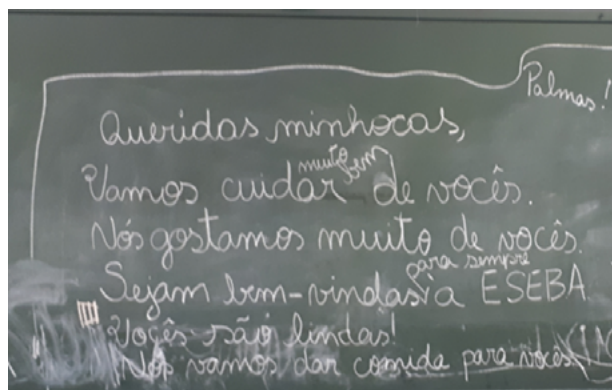 Palmas!
Queridas minhocas,
Vamos cuidar muito bem de vocês.
Nós gostamos muito de vocês.
Sejam bem-vindas para sempre a ESEBA
Vocês são lindas!
Nós vamos dar comida para vocês